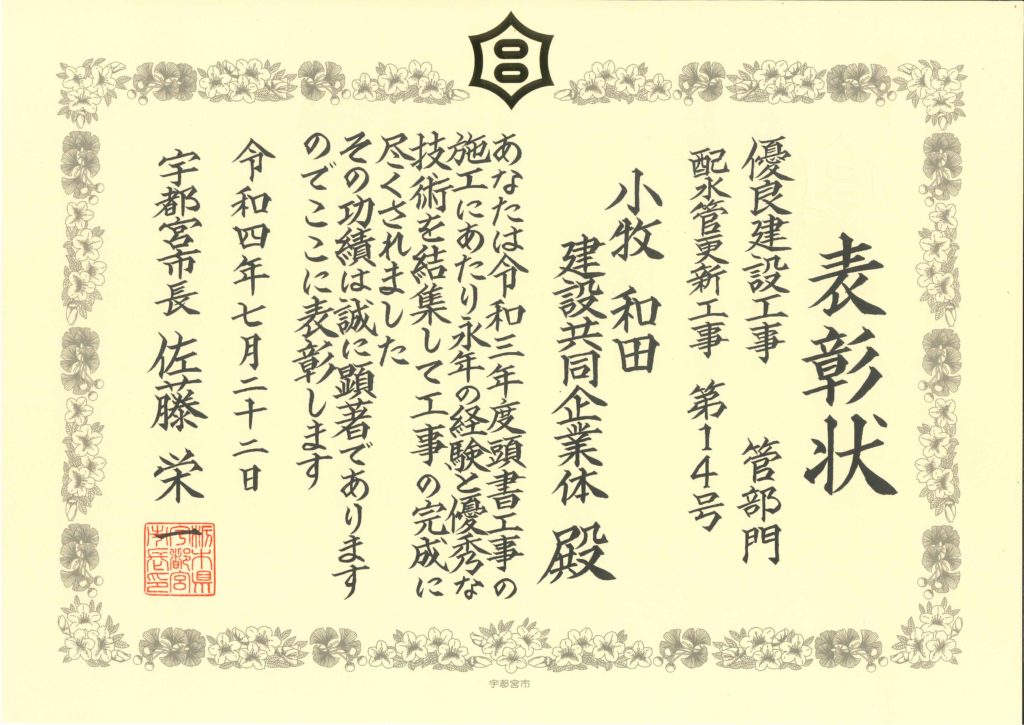 表彰状
優良建設工事 管部門
配水管更新工事 第14号
小牧 和田
建設共同企業体 殿
あなたは令和三年度頭書工事の
施工にあたり永年の経験と優秀な
技術を結集して工事の完成に
尽くされました
その功績は誠に顕著であります
のでここに表彰します
令和四年七月二十二日
宇都宮市長 佐藤 栄一
栃木県
宇都宮
市長印
宇都宮市